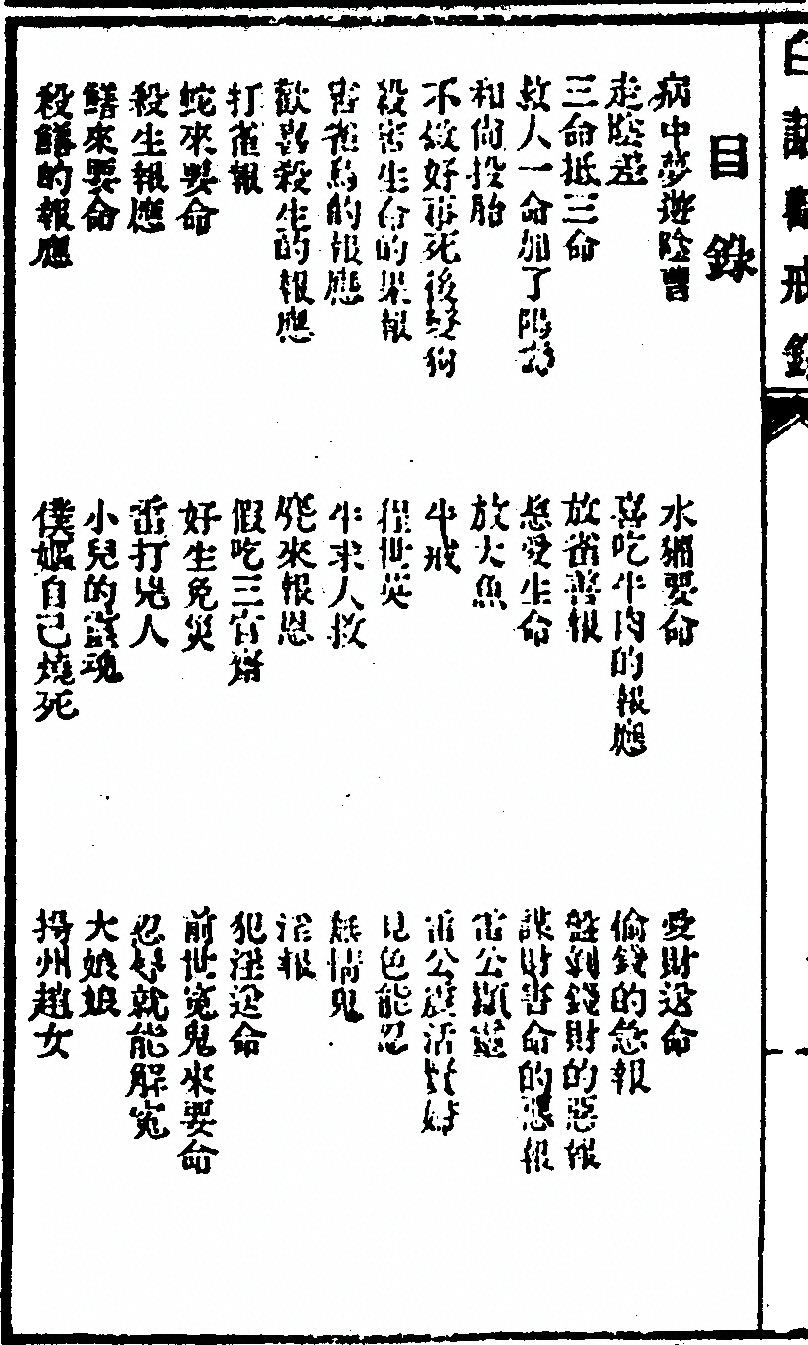 白話勸戒錄
目錄
病中夢遊陰曹
走陰差
三命抵三命
救人一命加了陽壽
和尚投胎
不做好事死後變狗
殺害生命的果報
害雀鳥的報應
歡喜殺生的報應
打雀報
蛇來要命
殺生報應
鱔來要命
殺鱔的報應
水獺要命
喜吃牛肉的報應
放雀善報
愛生命
放大魚
牛戒
程世英
牛求人救
來報恩
假吃三官齋
好生免災
雷打兇人
小兒的魂
僕嫗自己燒死
愛財送命
偷錢的急報
盤剝錢財的惡報
謀財害命的惡報
雷公顯靈
雷公活
見色能忍
無情鬼
淫報
犯淫送命
前世冤鬼來要命
忍辱就能解冤
大娘娘
揚州趙女